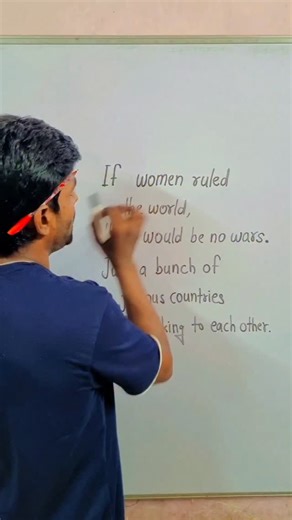 If women ruled
the world,
would be no wars.
a bunch of
countries
to each other.